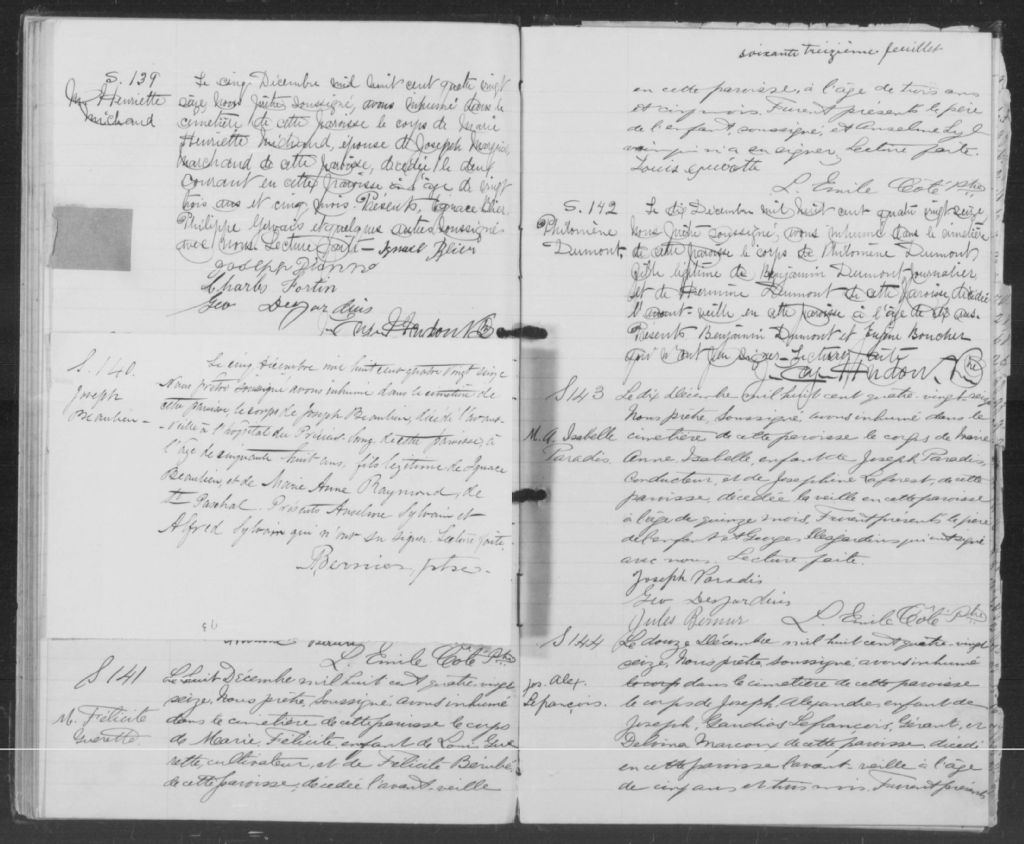 S. 139
M. Henriette
Michaud
Le cinq Décembre mil huit cent quatre vingt
seize nous prêtre soussigné, avons inhumé dans le
cimetière de cette paroisse le corps de Marie
Henriette Michaud, épouse de Joseph
Marchand de cette paroisse, décédée le deux
courant en cette paroisse à l'âge de vingt
trois ans et cinq mois. Présents, Ignace Blier
Philippe Gervais et quelques autres soussignés
avec nous. Lecture faite - Ignace Blier
Joseph Dionne
Charles Fortin
Geo Desjardins
S. 140.
Joseph
Beaulieu -
Le cinq décembre mil huit cent quatre vingt seize
Nous prêtre soussigné avons inhumé dans le cimetière de
cette paroisse, le corps de Joseph Beaulieu, décédé l'avant-
-veille à l'hôpital du de cette paroisse, à
l'âge de cinquante huit ans, fils légitime de Ignace
Beaulieu, et de Marie Anne Raymond, de
St. Paschal. Présents Anselme Sylvain et
Alfred Sylvain qui n'ont su signer. Lecture faite.
Bernier ptre.
L. Emile Côté Ptre
S 141
M. Félicité
Guerette
Le huit Décembre mil huit cent quatre vingt
seize, Nous prêtre, Soussigné avons inhumé
dans le cimetière de cette paroisse le corps
de Marie, Félicité, enfant de Louis Gue
rette, cultivateur, et de Félicité Bérubé,
de cette paroisse, décédée l'avant-veille
soixante treizième feuillet
en cette paroisse, à l'âge de trois ans
et cinq mois. Furent présents le père
de l'enfant, soussigné, et Anselme Syl
vain qui n'a su signer, Lecture faite.
Louis
L. Emile Côté Ptre
S. 142
Philomène
Dumont.
Le dix Décembre mil huit cent quatre vingt seize,
nous prêtre soussigné, avons inhumé dans le cimetière
de cette paroisse le corps de Philomène Dumont
fille légitime de Benjamin Dumont journalier
et de Hermine Dumont de cette paroisse, décédée
l'avant-veille en cette paroisse à l'âge de dix ans.
Présents Benjamin Dumont et Eugène Boucher
qui n'ont pu signer - Lecture faite
S 143
M. A. Isabelle
Paradis.
Le dix Décembre mil huit cent quatre-vingt seize
Nous prêtre, Soussigné avons inhumé dans le
cimetière de cette paroisse le corps de Marie
Anne, Isabelle, enfant de Joseph Paradis,
Conducteur, et de Josephine Laforest, de cette
paroisse, décédée la veille en cette paroisse
à l'âge de quinze mois, Furent présents le père
de l'enfant et Georges Desjardins qui ont signé
avec nous. Lecture faite.
Joseph Paradis
Geo Desjardins
Jules
L. Emile Côté Ptre
S 144
Jos. Alex.
Lefrançois.
Le douze Décembre mil huit cent quatre-vingt
seize, Nous prêtre, soussigné avons inhumé
le corps dans le cimetière de cette paroisse
le corps de Joseph, Alexandre, enfant de
Joseph, Lefrançois, Gérant, et
Delvina Marcoux de cette paroisse, décédé
en cette paroisse l'avant-veille à l'âge
de cinq ans et trois mois. Furent présents